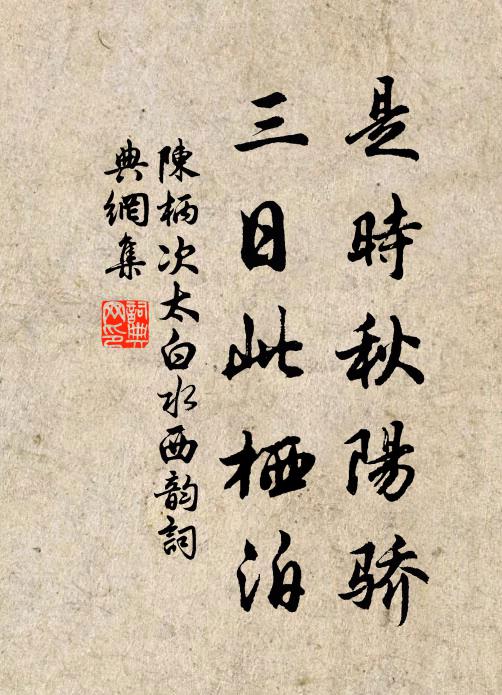 是時秋陽骄
三日此栖泊
陳柄次太白水西韵詞
典網集
詞典
网印